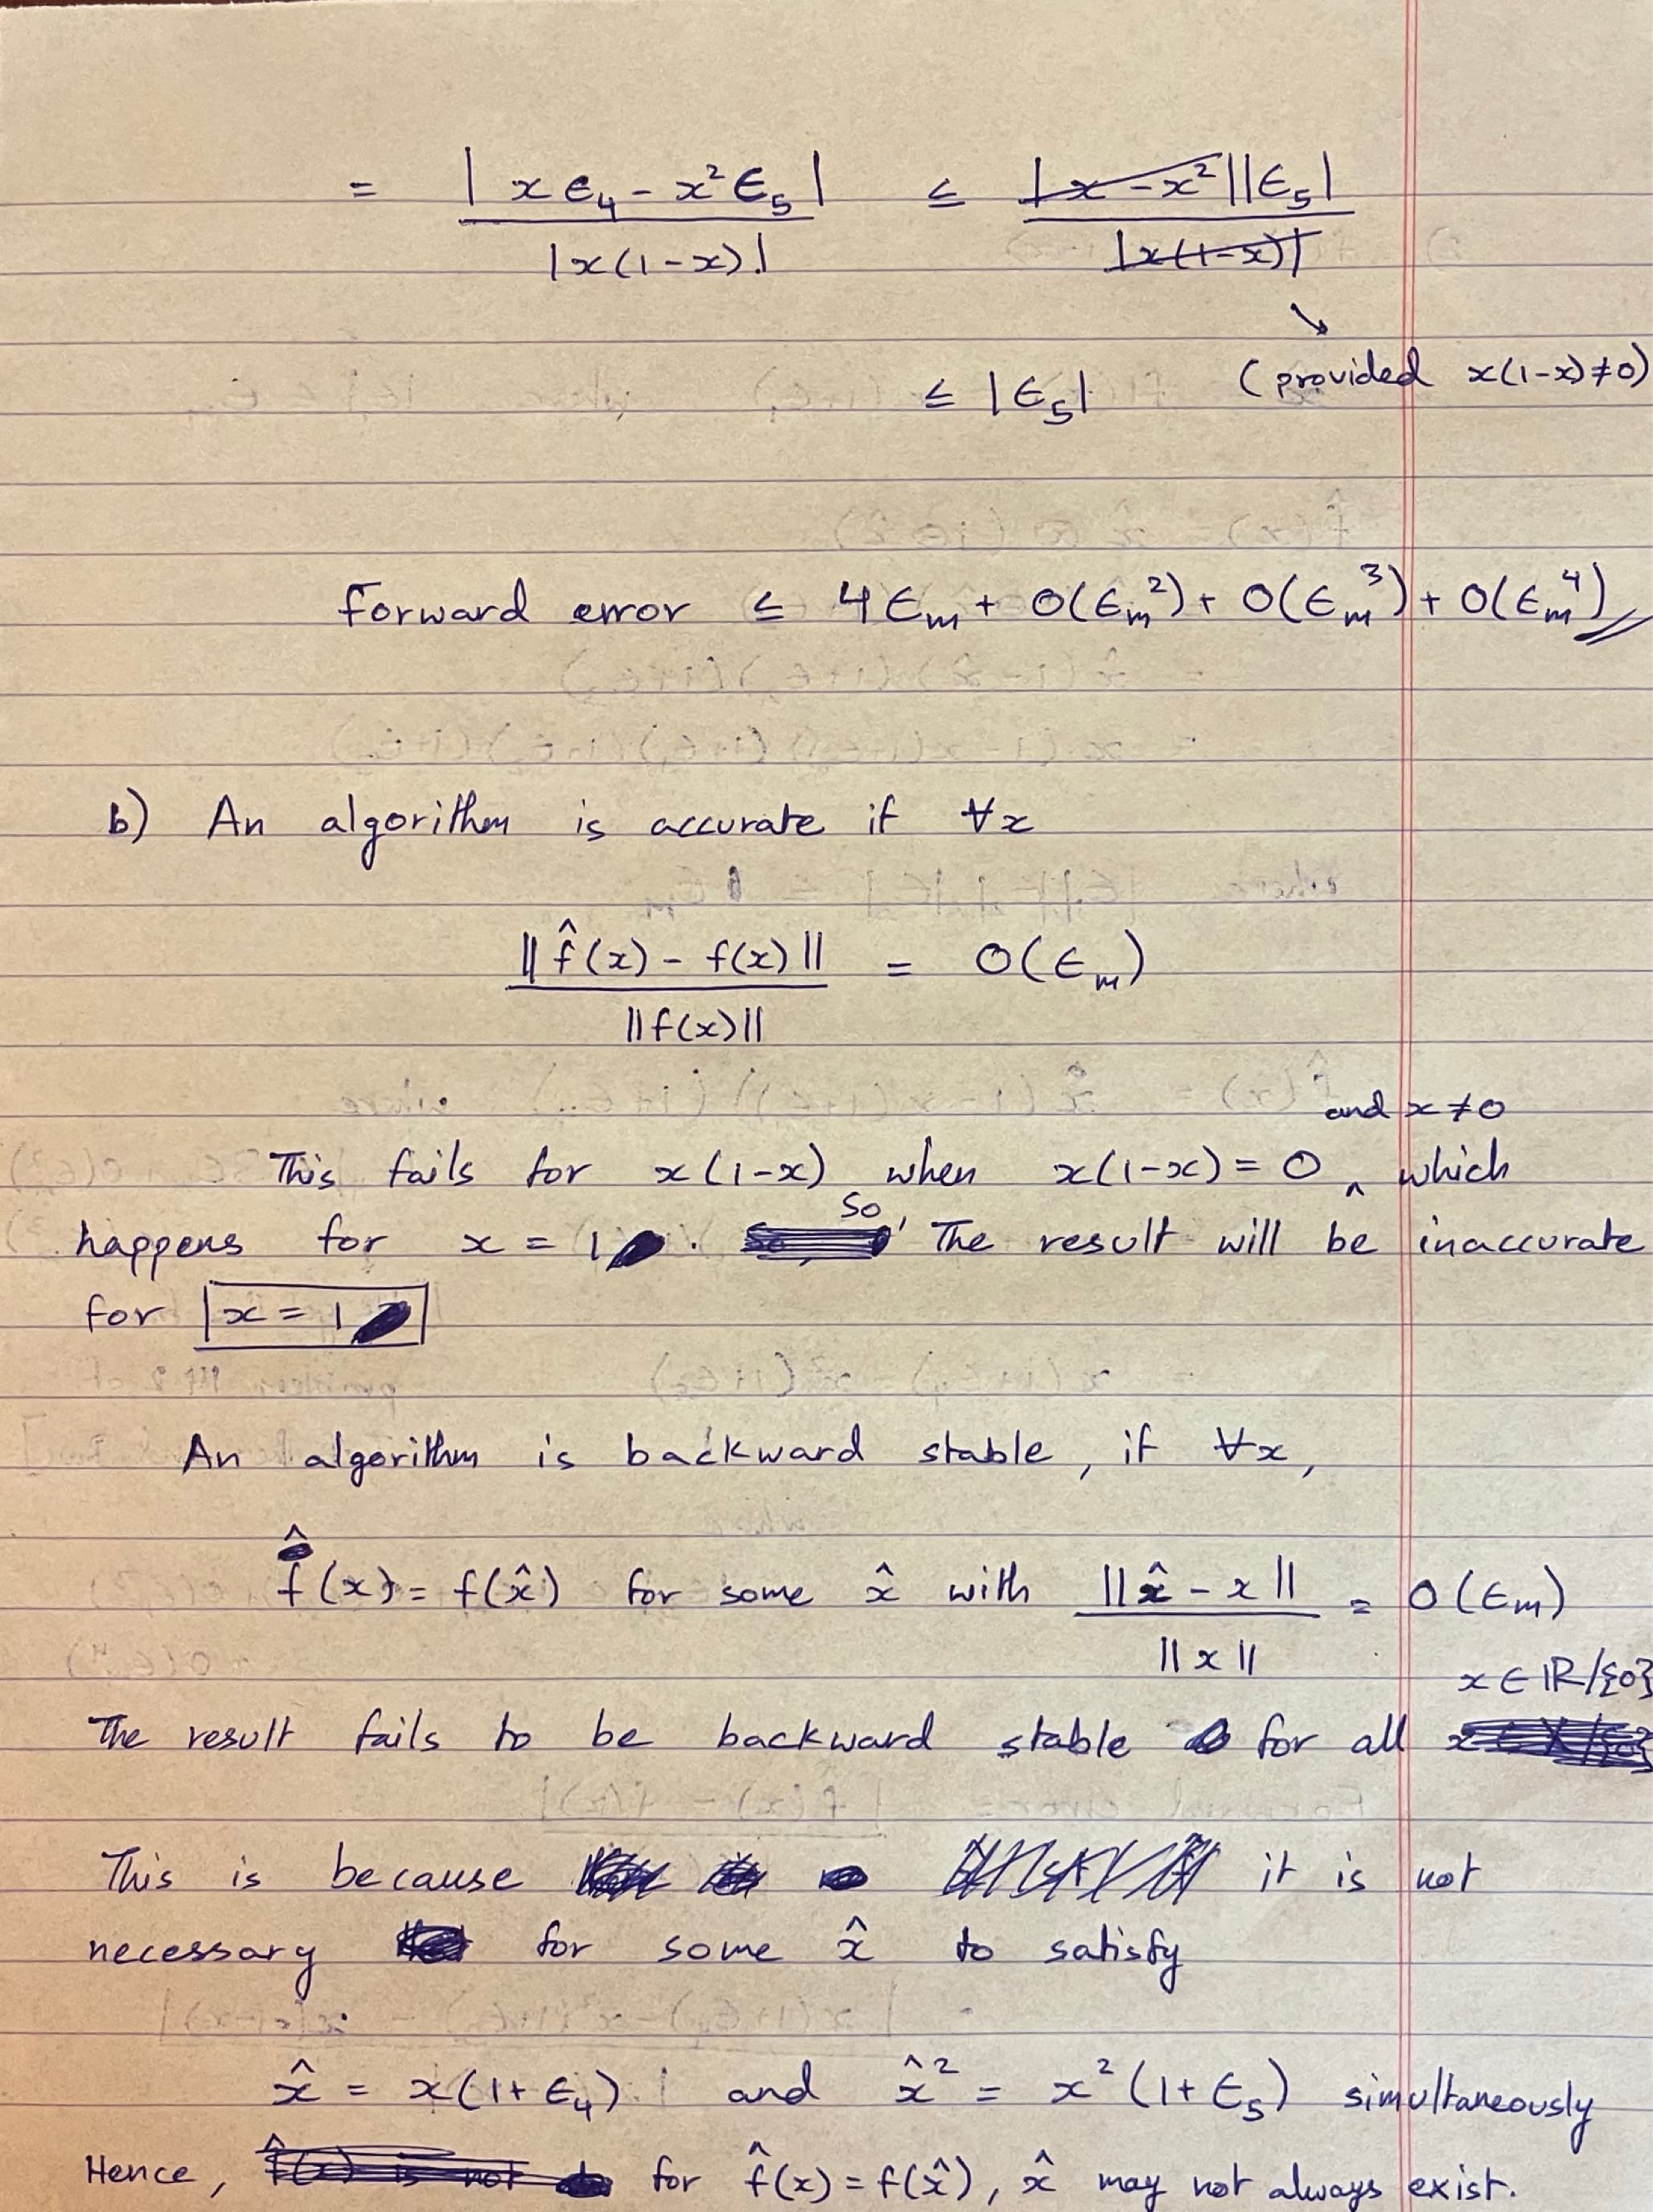 = |xϵ₄ - x²ϵ₅| / |x(1-x)| ≤ |x - x²||ϵ₅| / |x(1-x)|
↘
≤ |ϵ₅| (provided x(1-x)≠0)
Forward error ≤ 4ϵₘ + O(ϵₘ²) + O(ϵₘ³) + O(ϵₘ⁴)
b) An algorithm is accurate if ∀x
||f̂(x) - f(x)|| / ||f(x)|| = O(ϵₘ)
and x ≠ 0
This fails for x(1-x) when x(1-x) = 0 ^ which
happens for x = 1 . So, The result will be inaccurate
for x = 1
An algorithm is backward stable, if ∀x,
f̂(x) = f(x̂) for some x̂ with ||x̂ - x|| / ||x|| = O(ϵₘ)
x ∈ ℝ/{0}
The result fails to be backward stable for all
This is because it is not
necessary for some x̂ to satisfy
x̂ = x(1+ϵ₄) and x̂² = x²(1+ϵ₅) simultaneously
Hence, for f̂(x) = f(x̂), x̂ may not always exist.